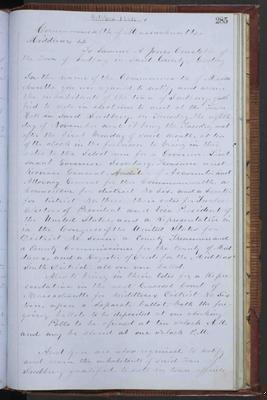 October 28th
285
Commonwealth of Massachusetts
Middlesex ss.
To Samuel A. Jones Constable of
the Town of Sudbury in said County, Greeting
In the name of the Commonwealth of Massa
chusetts you are required to notify and warn
the inhabitants of the Town of Sudbury
to vote in elections to meet at the Town
Hall in said Sudbury on Tuesday the
day of November next being the Tuesday next
after the first Monday of said month, at
of the clock in the forenoon to bring in their
votes to the Selectmen for a Governor Lieu
tenant Governor Secretary Treasurer and
Receiver General Auditor of Accounts and
Attorney General for the Commonwealth a
Councillor for district No and a Senator
for District No their votes for
Electors of President and Vice President of
the United States and a Representative in
the Congress of the United States for
District No a County Treasurer and
a County Commissioner for the County of Middl
and a Register of Deeds for the Middlesex
South District, all on one ballot.
Also to bring in their votes for a Repre
sentative in the next General Court of
Massachusetts for Middlesex District No
upon a separate ballot from the fore
going, ballots to be deposited at one
Polls to be opened at ten o'clock A.M.
and may be closed at one o'clock P.M.
And you are also required to notify
and warn the inhabitants of said Town of
Sudbury qualified to vote in town affairs